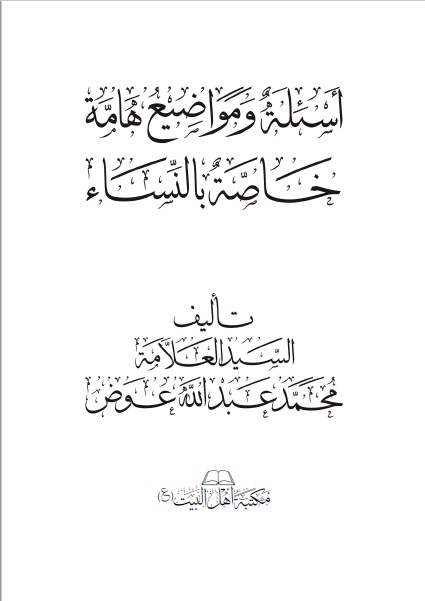 أَسْئِلَةٌ وَمَوَاضِيعُ هَامَّة
خَاصَّةٌ بِالنِّسَاء
تأليف
السَّيِّد العَلاَّمَة
مُحَمَّد عَبدالله عَوَض
مكتبة أهل البيت (ع)